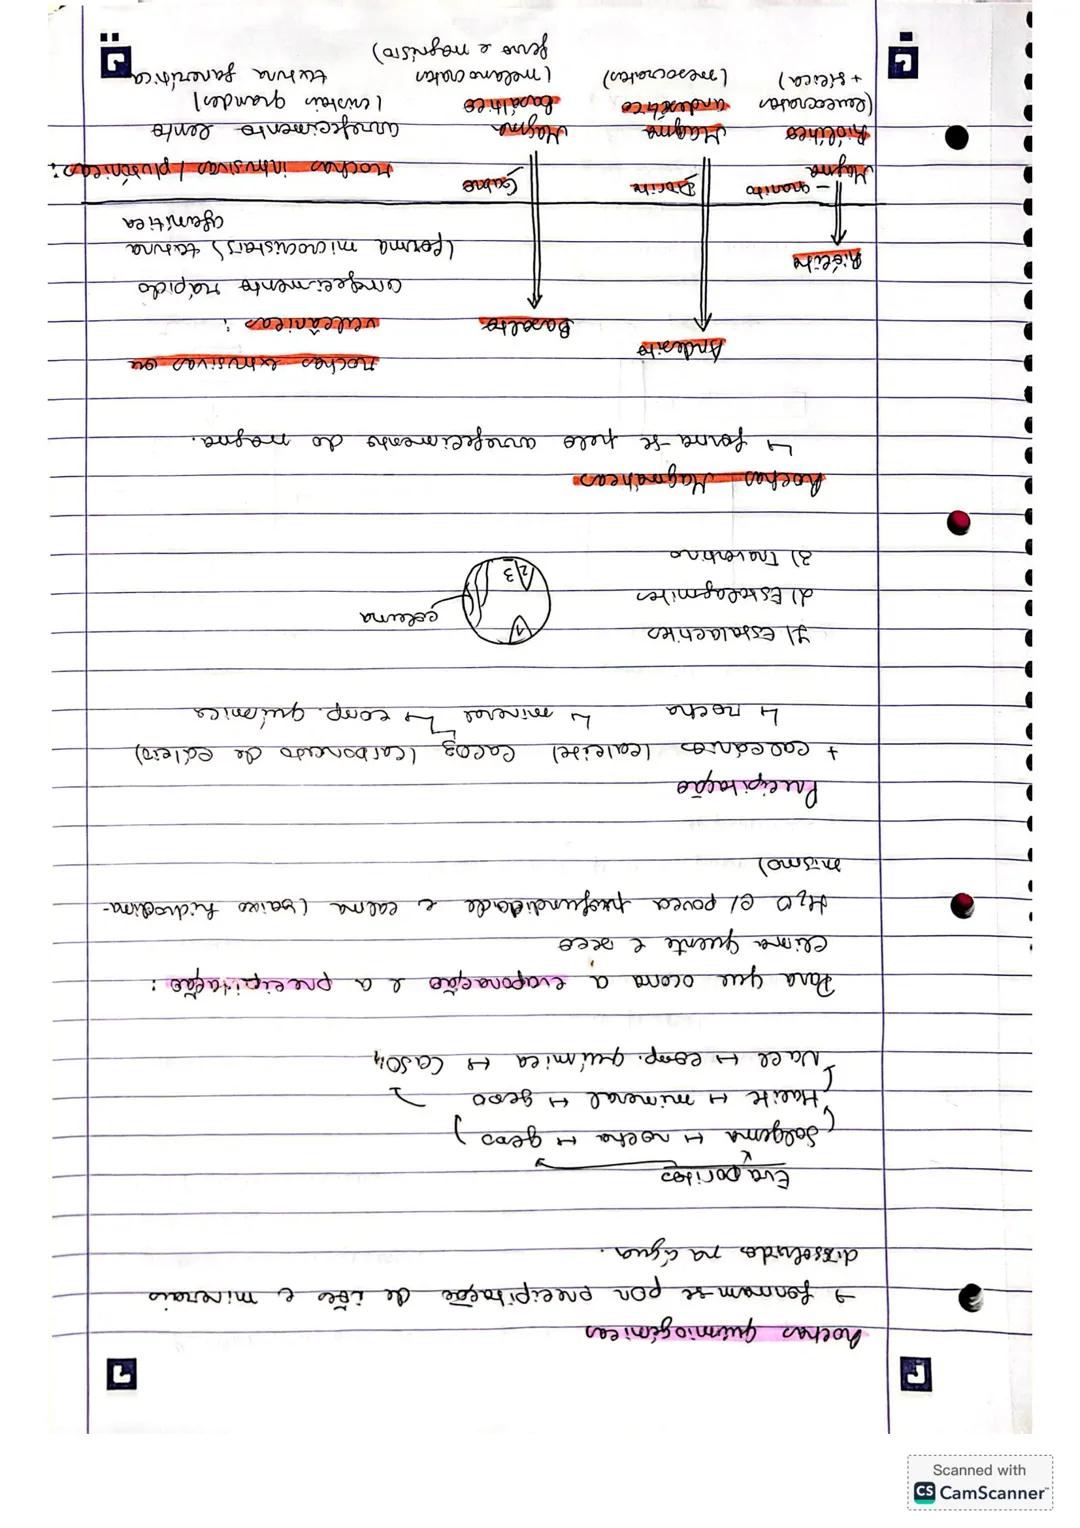 Rochas quimiogénicas
→ formam-se por precipitação de iões e minerais
dissolvidos na água.
Evaporitos
(Salgema ↦ rocha ↦ gesso)
Halite ↦ mineral ↦ gesso
NaCl ↦ comp. química ↦ CaSO4
Para que ocorra a evaporação e a precipitação:
clima quente e seco
H2O c/ pouca profundidade e calma (baixo hidrodina-
mismo)
Precipitação
+ calcários (calcite) CaCO3 (carbonato de cálcio)
↳ rocha ↳ mineral ↳ comp. química
1) Estalactites
2) Estalagmites
3) Travertino
1
2
3
coluna
Rochas Magmáticas
↳ forma-se pelo arrefecimento do magma.
Andesito
rochas extrusivas ou
Basalto
vulcânicas:
arrefecimento rápido
Riólito
(forma microcristais) textura
afanítica
Magma - granito
Diorito
Gabro
rochas intrusivas / plutónicas:
Riolítico
Magma
Magma
arrefecimento lento
(leucocrata
andesítico
basáltico
(cristais grandes)
+ sílica)
(mesocrata)
(melanocrata
textura fanerítica
ferro e magnésio)
Scanned with
CS CamScanner